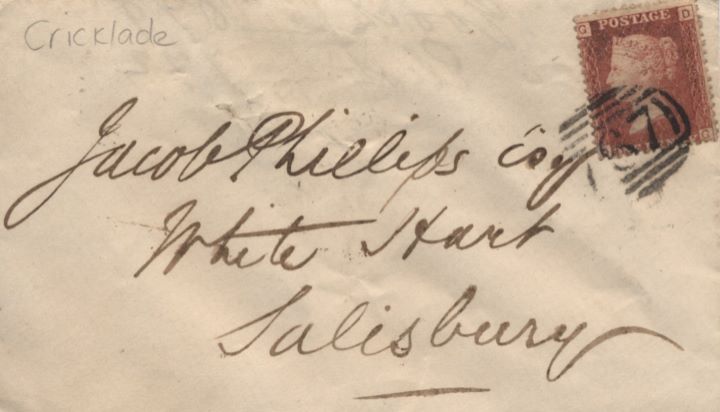 Cricklade
G POSTAGE D
Jacob Phillips Esq
White Hart
Salisbury